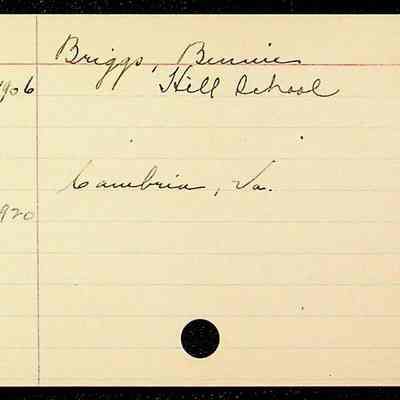 Briggs, Bennie
1906 Hill School
Cambria, Va.
1920